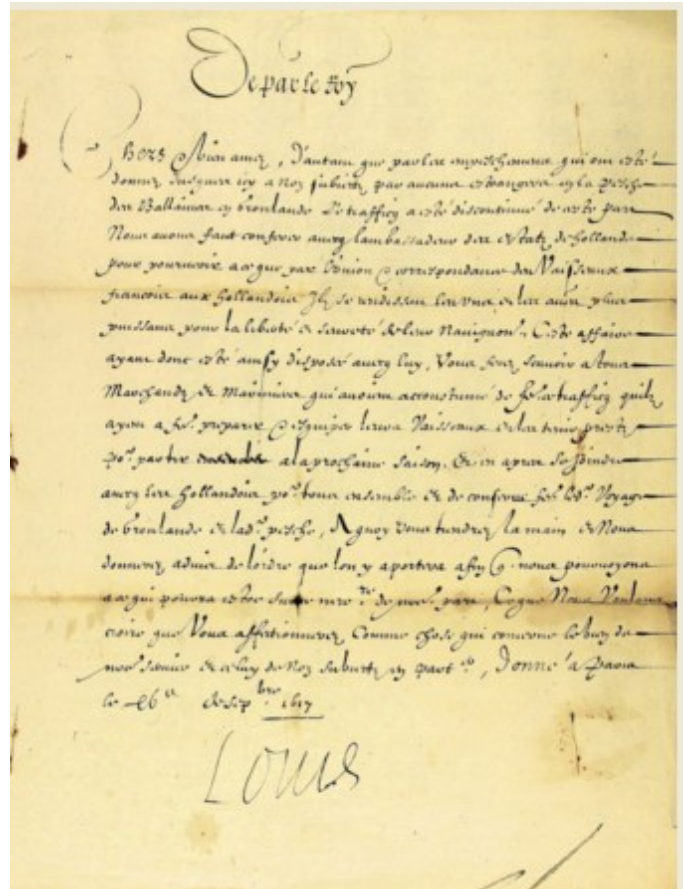 De par le Roy
Chers et bien amez, D'autant que par les empeschemens qui ont esté
donnez jusques icy a noz subiectz par aucuns estrangers en la pesche
des Ballaines en Gronlande Le traffiq a esté discontinué de ceste part
Nous avons faict conferer avecq lambassadeur des Estatz de hollande
pour pourveoir a ce que par l'union et correspondance des Vaisseaux
francois aux hollandois Ilz se rendissent les uns et les autres plus
puissans pour la liberté et seureté de leur Navigaon. Ceste affaire
ayant donc esté ainsy disposé avecq luy, Vous ferez scavoir a tous
Marchandz et Mariniers qui avoient accoustumé de fe. ce traffiq quilz
ayent a fe. preparer et esquiper leurs Vaisseaux et les tenir prestz
po.r partir a la prochaine saison. Et en apres se Joindre
avecq les hollandois po.r tous ensemble et de conserve fe. led.t Voyage
de Gronlande et lad.e pesche, A quoy vous tiendrez la main et Nous
donnerez advis de lordre que lon y aportera afin q. nous pourvoyons
a ce qui pourra estre de nre. part, Ce que Nous Voulons
croire que Vous affectionnerez Comme chose qui concerne le bien de
nre. service et celuy de Noz subiectz en part.er, Donné a Paris
le de sep.bre
Louis